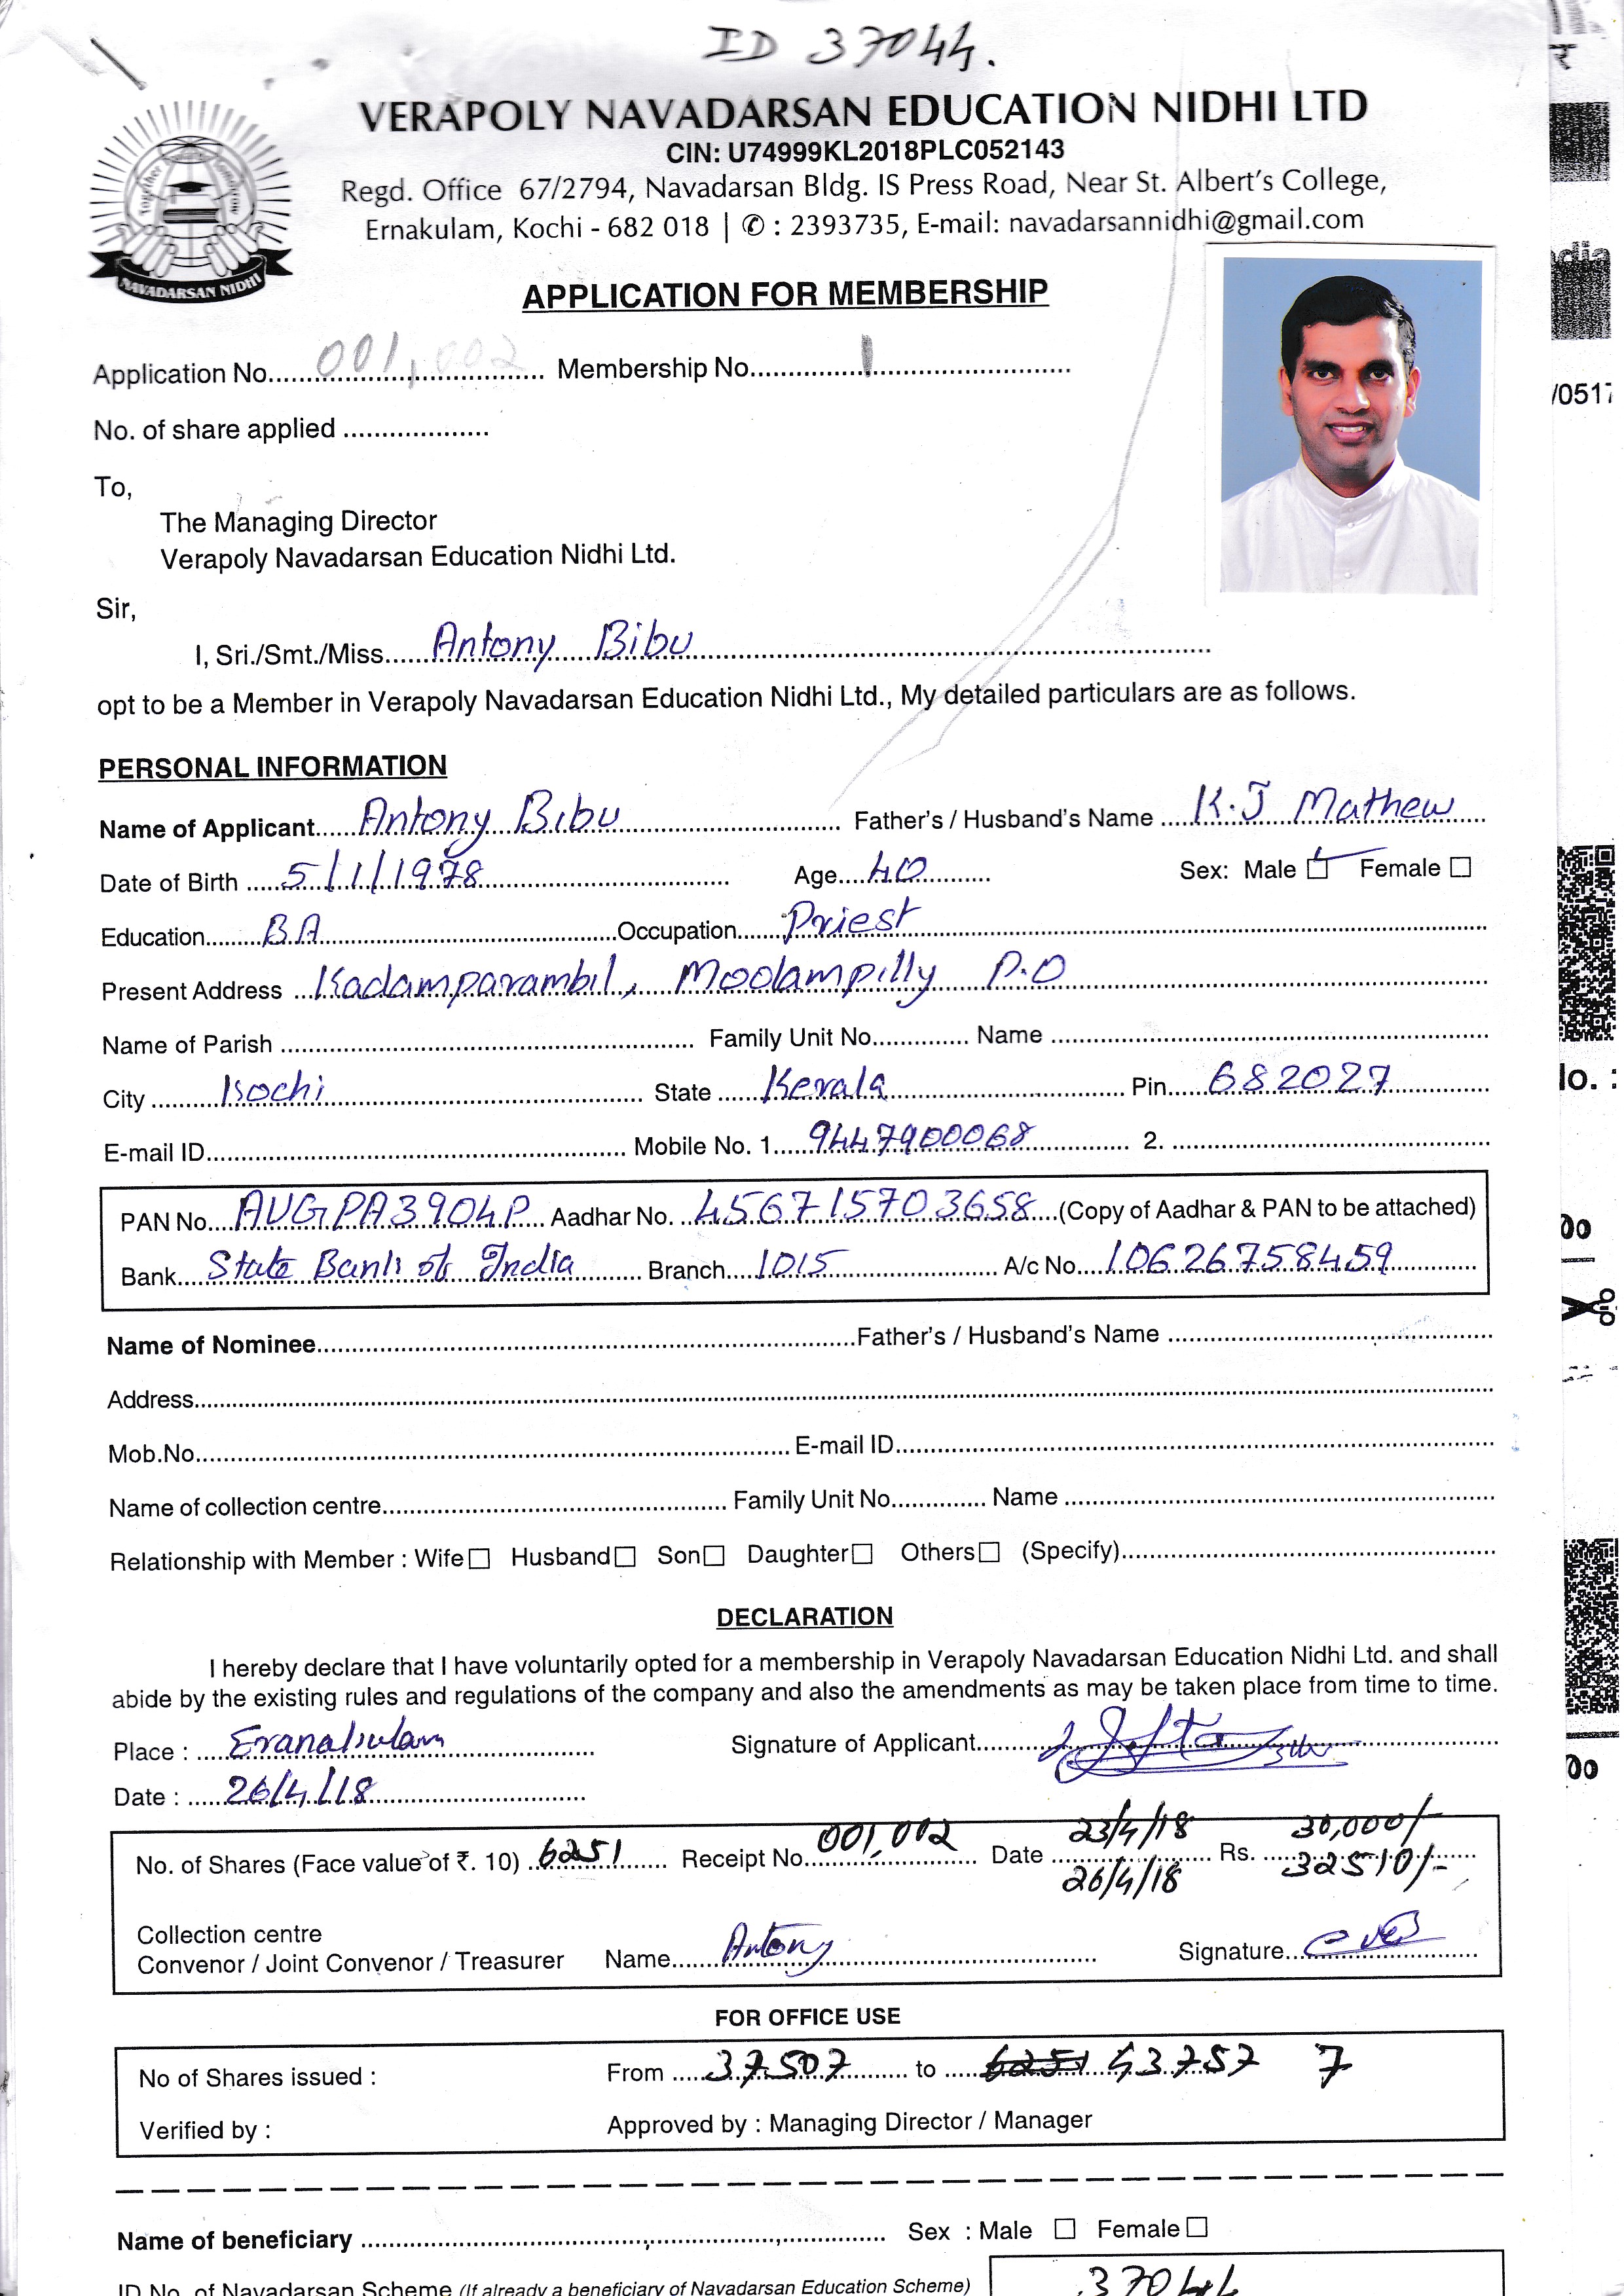 ID 37044.
VERAPOLY NAVADARSAN EDUCATION NIDHI LTD
CIN: U74999KL2018PLC052143
Regd. Office 67/2794, Navadarsan Bldg. IS Press Road, Near St. Albert's College,
Ernakulam, Kochi - 682 018 | ✆ : 2393735, E-mail: navadarsannidhi@gmail.com
NAVADARSAN NIDHI
APPLICATION FOR MEMBERSHIP
Application No. 001, 002 Membership No. 1
/0517
No. of share applied
To,
The Managing Director
Verapoly Navadarsan Education Nidhi Ltd.
Sir,
I, Sri./Smt./Miss. Antony Bibu
opt to be a Member in Verapoly Navadarsan Education Nidhi Ltd., My detailed particulars are as follows.
PERSONAL INFORMATION
Name of Applicant Antony Bibu Father's / Husband's Name K.J Mathew
Date of Birth 5/1/1978 Age 40 Sex: Male ☑ Female ☐
Education BA Occupation Priest
Present Address Kadamparambil, Moolampilly P.O
Name of Parish Family Unit No. Name
City Kochi State Kerala Pin 682027
E-mail ID Mobile No. 1. 9447900068 2.
PAN No. AUGPA3904P Aadhar No. 456715703658 (Copy of Aadhar & PAN to be attached)
Bank State Bank of India Branch 1015 A/c No. 10626758459
Name of Nominee Father's / Husband's Name
Address
Mob.No. E-mail ID
Name of collection centre Family Unit No. Name
Relationship with Member : Wife ☐ Husband ☐ Son ☐ Daughter ☐ Others ☐ (Specify)
DECLARATION
I hereby declare that I have voluntarily opted for a membership in Verapoly Navadarsan Education Nidhi Ltd. and shall
abide by the existing rules and regulations of the company and also the amendments as may be taken place from time to time.
Place : Eranakulam Signature of Applicant
Date : 26/4/18
No. of Shares (Face value of ₹. 10) 6251 Receipt No. 001,002 Date 23/4/18 Rs. 30,000/-
26/4/18 32510/-
Collection centre
Convenor / Joint Convenor / Treasurer Name Antony Signature
FOR OFFICE USE
No of Shares issued : From 37507 to 6251 43757 7
Verified by : Approved by : Managing Director / Manager
Name of beneficiary Sex : Male ☐ Female ☐
ID No. of Navadarsan Scheme (If already a beneficiary of Navadarsan Education Scheme) 37044